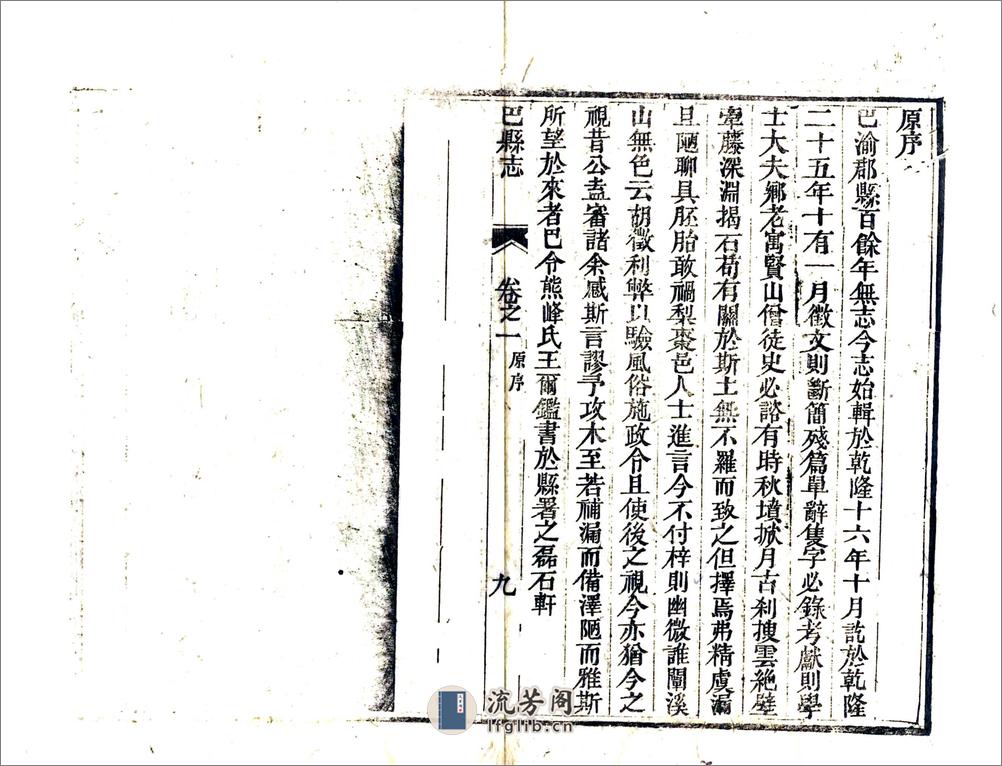 原序
巴渝郡縣百餘年無志今志始輯於乾隆十六年十月訖於乾隆
二十五年十有一月徵文則斷簡殘篇單辭隻字必錄考獻則學
士大夫鄉老寓賢山僧徒史必諮有時秋墳掀月古刹捜雲絶壁
牽藤深淵揭石苟有關於斯土無不羅而致之但擇焉弗精虞漏
且陋聊具胚胎敢禍梨棗邑人士進言今不付梓則幽微誰闡溪
山無色云胡徵利弊以驗風俗施政令且使後之視今亦猶今之
視昔公盍審諸余感斯言謬予攻木至若補漏而備澤陋而雅斯
所望於來者巴令熊峰氏王爾鑑書於縣署之磊石軒
巴縣志
卷之一
原序
九
流芳阁
lfglib.cn